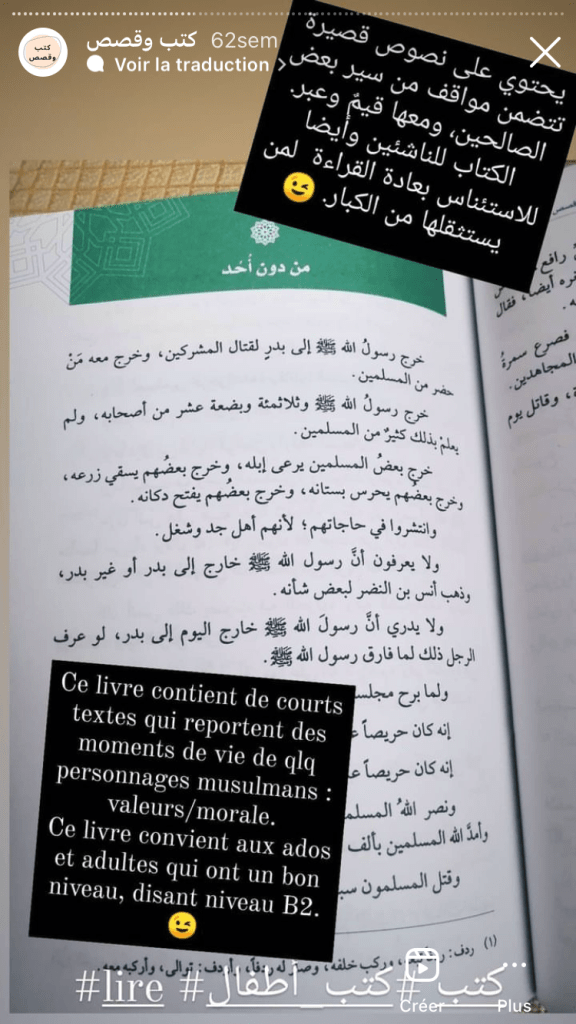 كتب وقصص
كتب وقصص 62sem
Voir la traduction >
يحتوي على نصوص قصيرة
تتضمن مواقف من سير بعض
الصالحين، ومعها قيمٌ وعبر.
الكتاب للناشئين وأيضا
للاستئناس بعادة القراءة لمن
يستثقلها من الكبار. 😉
من دون أُحُد
خرج رسولُ الله ﷺ إلى بدرٍ لقتال المشركين، وخرج معه مَنْ
حضر من المسلمين.
خرج رسولُ الله ﷺ وثلاثمئة وبضعة عشر من أصحابه، ولم
يعلمْ بذلك كثيرٌ من المسلمين.
خرج بعضُ المسلمين يرعى إبله، وخرج بعضُهم يسقي زرعه،
وخرج بعضُهم يحرس بستانه، وخرج بعضُهم يفتح دكانه.
وانتشروا في حاجاتهم؛ لأنهم أهل جد وشغل.
ولا يعرفون أنَّ رسول الله ﷺ خارج إلى بدر أو غير بدر،
وذهب أنس بن النضر لبعض شأنه.
ولا يدري أنَّ رسولَ الله ﷺ خارج اليوم إلى بدر، لو عرف
الرجل ذلك لما فارق رسول الله ﷺ.
ولما برح مجلسه
إنه كان حريصاً
إنه كان حريصاً
ونصر اللهُ
وأمدَّ الله المسلمين بألف
وقتل المسلمون
رافع
أيضاً، فقال
فصرع سمرةُ
المجاهدين.
وقاتل يوم
Ce livre contient de courts
textes qui reportent des
moments de vie de qlq
personnages musulmans :
valeurs/morale.
Ce livre convient aux ados
et adultes qui ont un bon
niveau, disant niveau B2.
😉
(١) ردف: وركب خلفه، وصار له ردفاً، وأردف: توالى، وأركبه معه.
#كتب #كتب_أطفال #lire
Créer
Plus